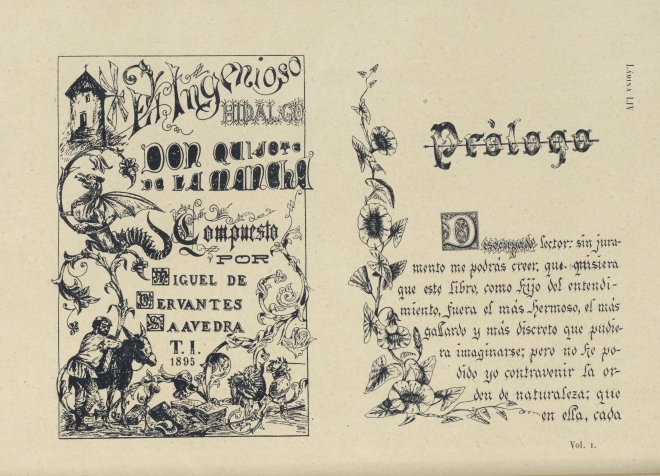 El Ingenioso
HIDALGO
DON QUIJOTE
DE LA MANCHA
Compuesto
POR
MIGUEL DE
CERVANTES
SAAVEDRA
T. I.
1895
LÁMINA LIV
Prólogo
Desocupado lector: sin jura-
mento me podrás creer, que quisiera
que este libro, como hijo del entendi-
miento, fuera el más hermoso, el más
gallardo y más discreto que pudie-
ra imaginarse; pero no he po-
dido yo contravenir la or-
den de naturaleza; que
en ella, cada
Vol. I.